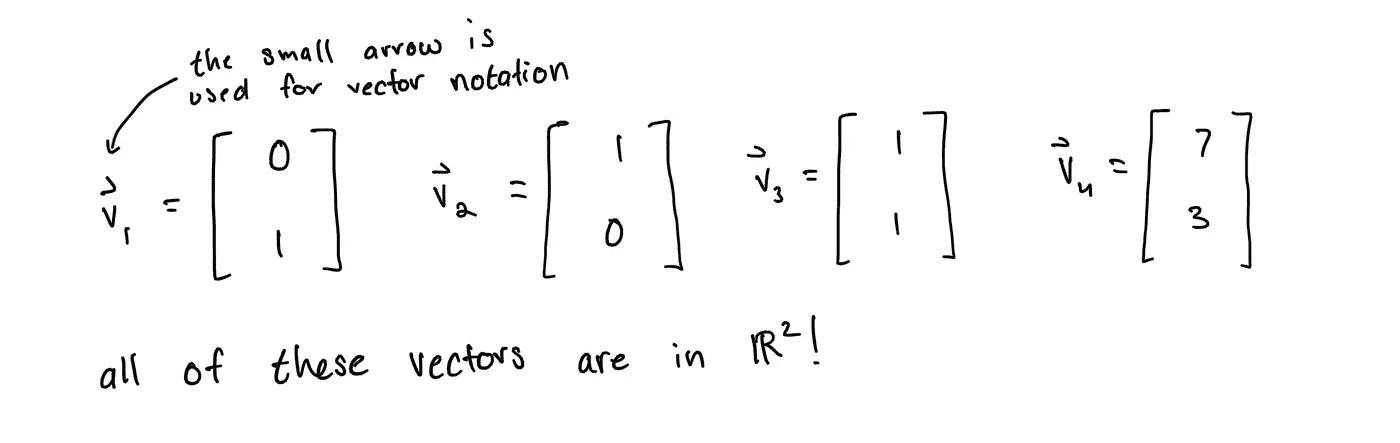 the small arrow is
used for vector notation
v⃗₁ = [0 1] v⃗₂ = [1 0] v⃗₃ = [1 1] v⃗₄ = [7 3]
all of these vectors are in ℝ²!